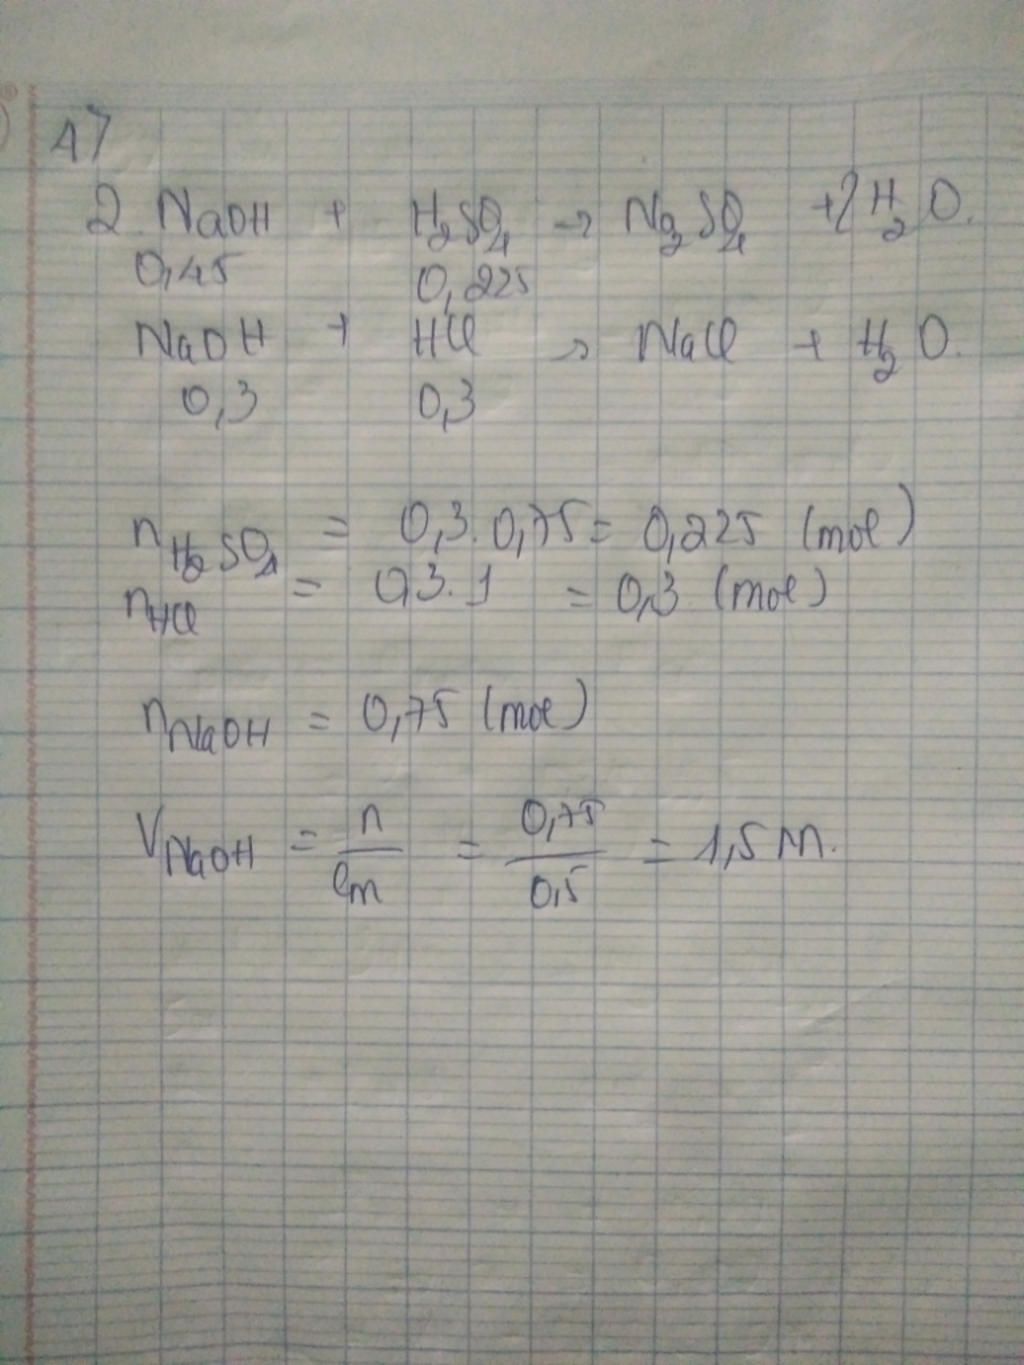 17
2 NaOH + H₂SO₄ → Na₂SO₄ + 2H₂O.
0,45 0,225
NaOH + HCl → NaCl + H₂O.
0,3 0,3
n H₂SO₄ = 0,3.0,75 = 0,225 (mol)
n HCl = 0,3.1 = 0,3 (mol)
n NaOH = 0,75 (mol)
V NaOH = n/Cm = 0,75/0,5 = 1,5 M.